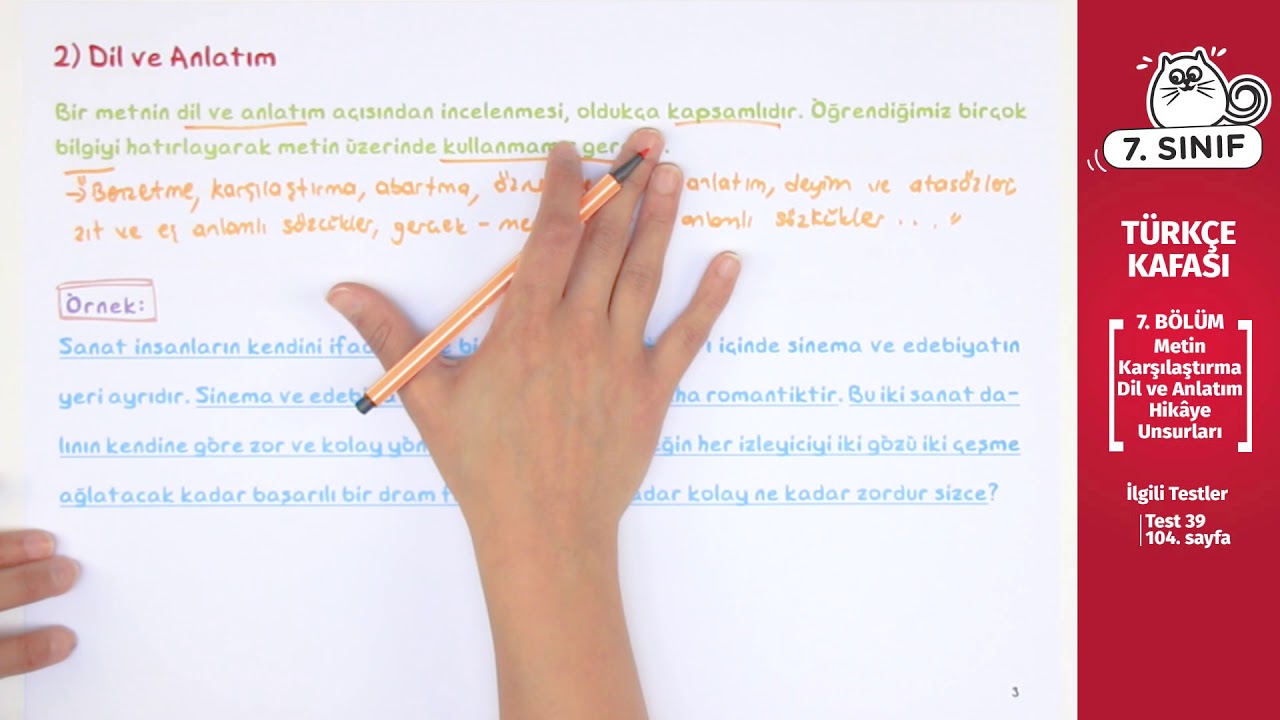 2) Dil ve Anlatım
Bir metnin dil ve anlatım açısından incelenmesi, oldukça kapsamlıdır. Öğrendiğimiz birçok
bilgiyi hatırlayarak metin üzerinde kullanmamız
→ Benzetme, karşılaştırma, abartma, anlatım, deyim ve atasözleri
zıt ve eş anlamlı sözcükler, gerçek - anlamlı sözkükler . . . . "
Örnek:
Sanat insanların kendini içinde sinema ve edebiyatın
yeri ayrıdır. Sinema ve romantiktir. Bu iki sanat da-
lının kendine göre zor ve kolay her izleyiciyi iki gözü iki çeşme
ağlatacak kadar başarılı bir dram kolay ne kadar zordur sizce?
3
7. SINIF
TÜRKÇE
KAFASI
7. BÖLÜM
Metin
Karşılaştırma
Dil ve Anlatım
Hikâye
Unsurları
İlgili Testler
Test 39
104. sayfa